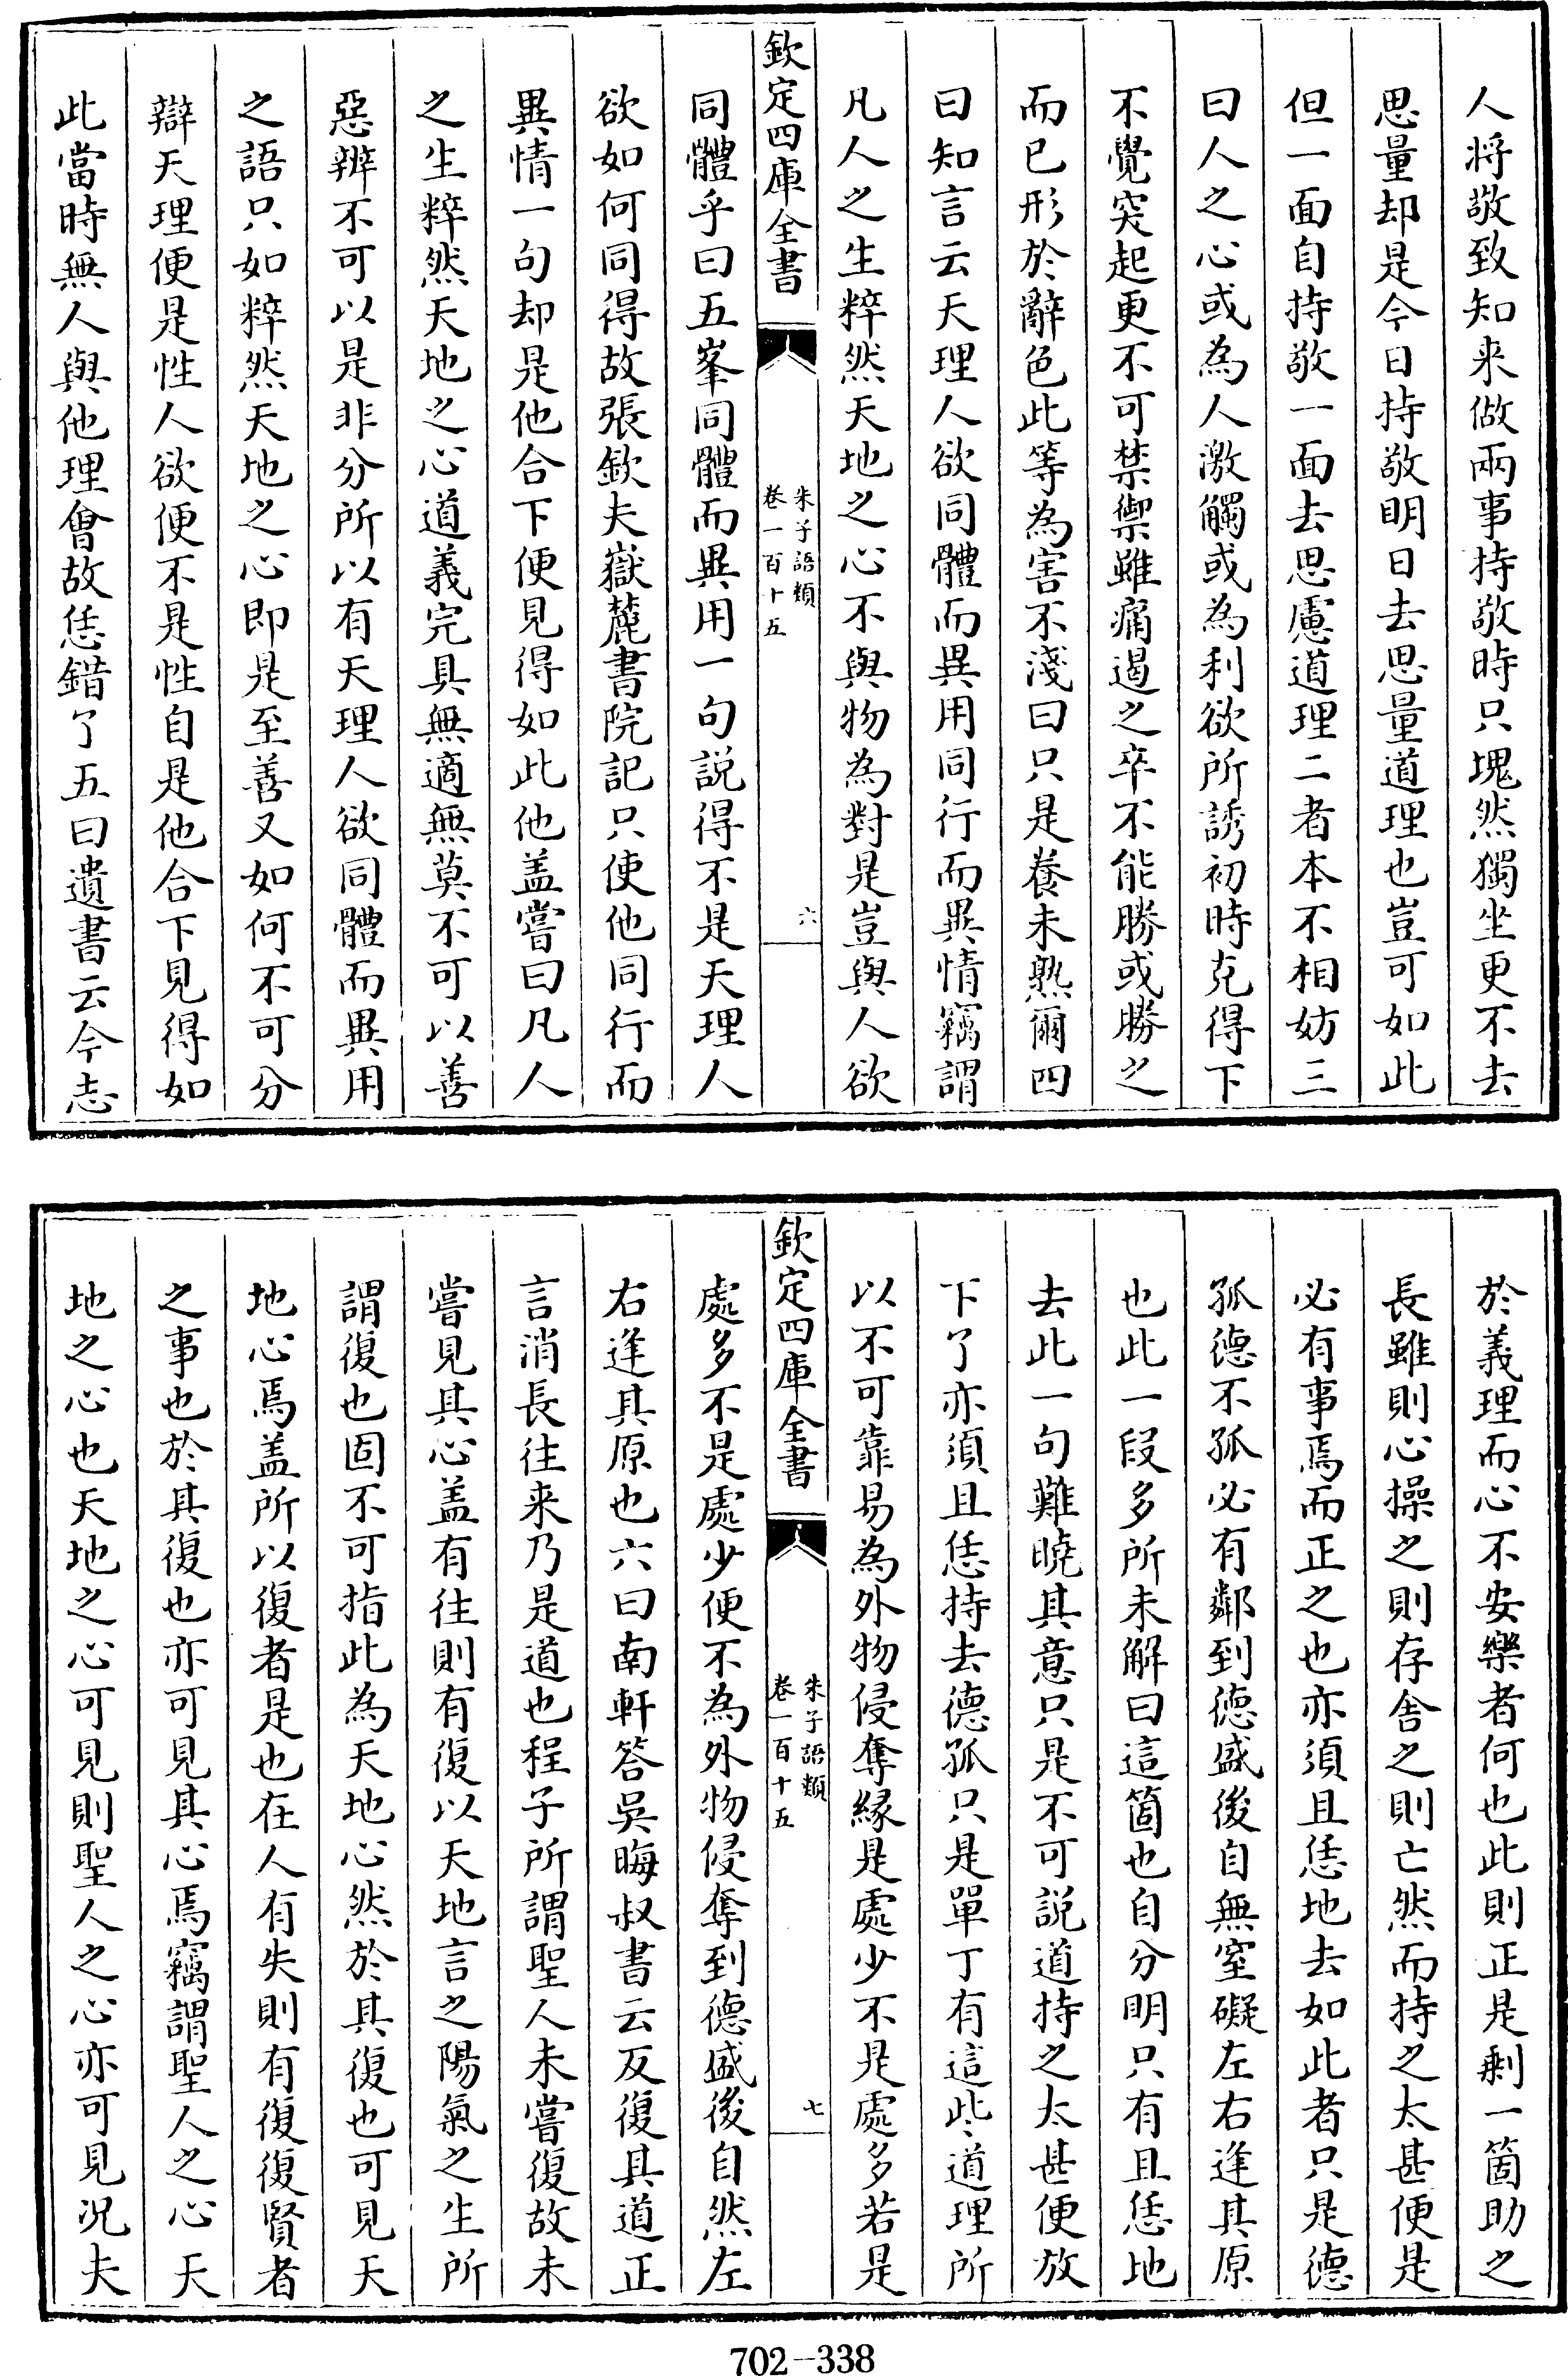 人将敬致知来做兩事持敬時只塊然獨坐更不去
思量却是今日持敬明日去思量道理也豈可如此
但一面自持敬一面去思慮道理二者本不相妨三
曰人之心或為人激觸或為利欲所誘初時克得下
不覺突起更不可禁禦雖痛遏之卒不能勝或勝之
而已形於辭色此等為害不淺曰只是養未熟爾四
曰知言云天理人欲同體而異用同行而異情竊謂
凡人之生粹然天地之心不與物為對是豈與人欲
欽定四庫全書
朱子語類
卷一百十五
六
同體乎曰五峯同體而異用一句説得不是天理人
欲如何同得故張欽夫嶽麓書院記只使他同行而
異情一句却是他合下便見得如此他盖嘗曰凡人
之生粹然天地之心道義完具無適無莫不可以善
惡辨不可以是非分所以有天理人欲同體而異用
之語只如粹然天地之心即是至善又如何不可分
辯天理便是性人欲便不是性自是他合下見得如
此當時無人與他理會故恁錯了五曰遺書云今志
於義理而心不安樂者何也此則正是剰一箇助之
長雖則心操之則存舎之則亡然而持之太甚便是
必有事焉而正之也亦須且恁地去如此者只是德
孤德不孤必有鄰到德盛後自無窒礙左右逢其原
也此一段多所未解曰這箇也自分明只有且恁地
去此一句難曉其意只是不可説道持之太甚便放
下了亦須且恁持去德孤只是單丁有這些道理所
以不可靠易為外物侵奪緣是處少不是處多若是
欽定四庫全書
朱子語類
卷一百十五
七
處多不是處少便不為外物侵奪到德盛後自然左
右逢其原也六曰南軒答吳晦叔書云反復其道正
言消長往来乃是道也程子所謂聖人未嘗復故未
嘗見其心盖有往則有復以天地言之陽氣之生所
謂復也固不可指此為天地心然於其復也可見天
地心焉盖所以復者是也在人有失則有復復賢者
之事也於其復也亦可見其心焉竊謂聖人之心天
地之心也天地之心可見則聖人之心亦可見况夫
702-338